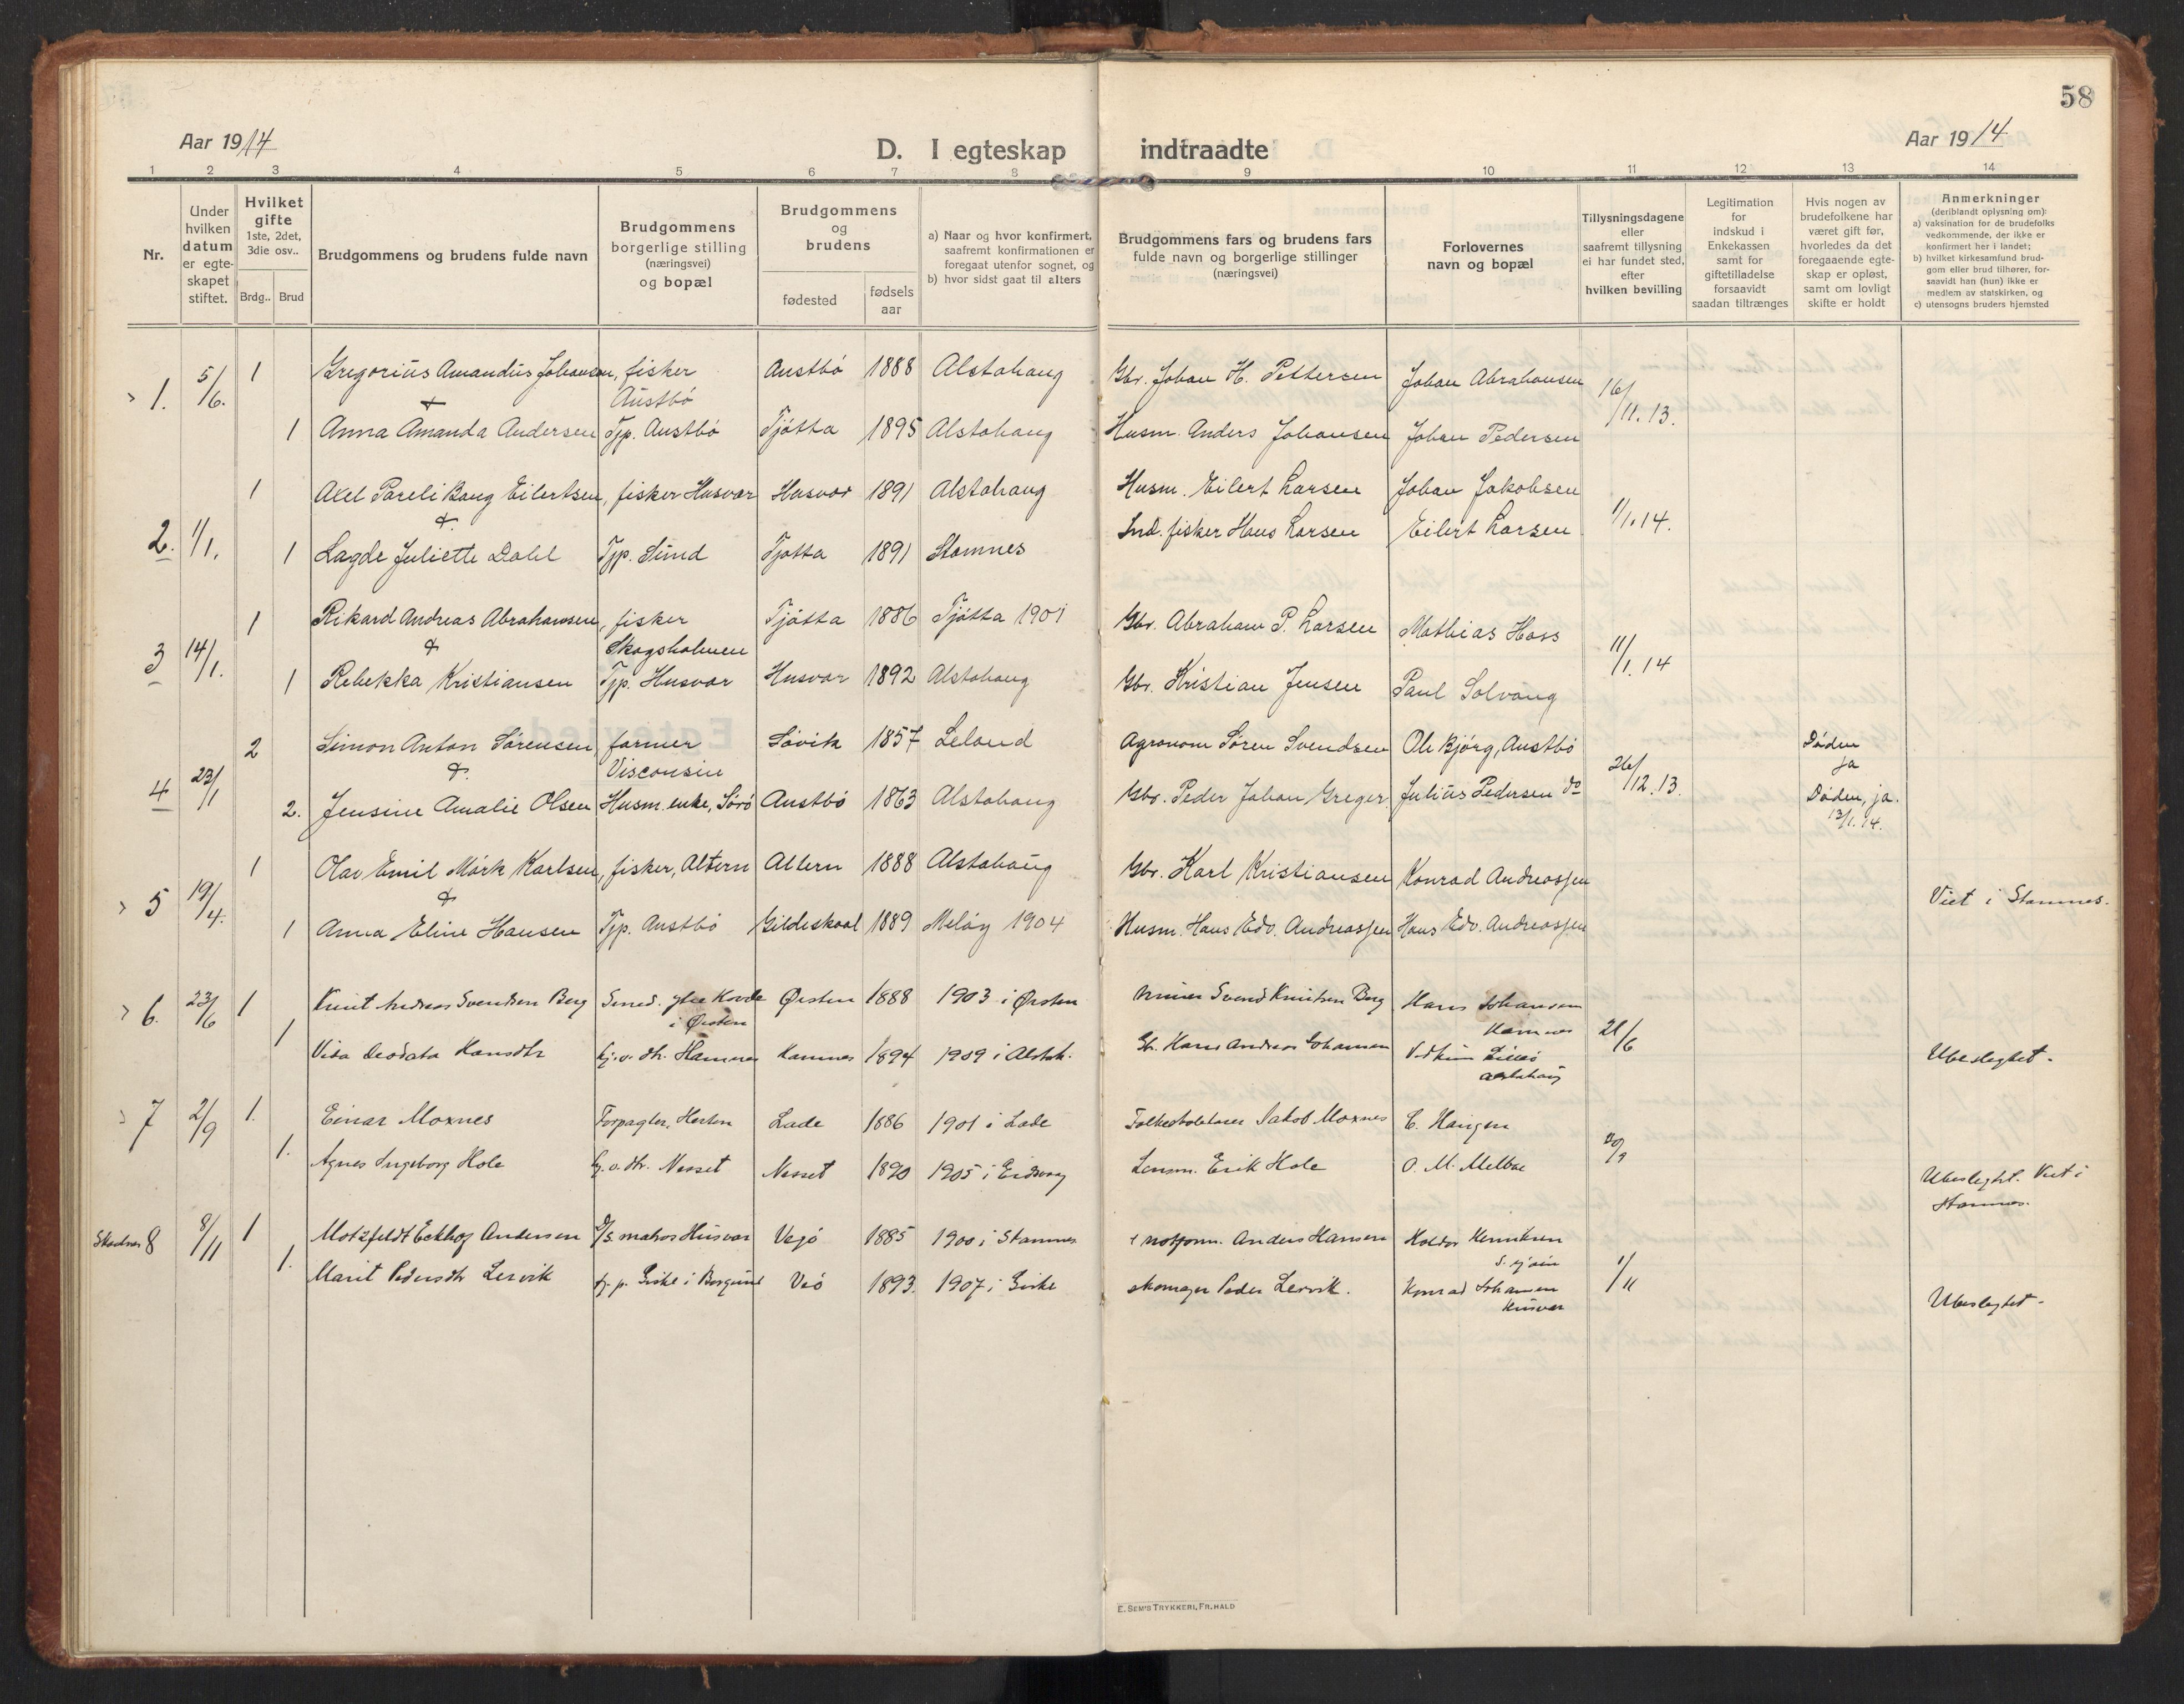 58
Aar 1914
D. I egteskap indtraadte
Aar 1914
1 2 3 4 5 6 7 8 9 10 11 12 13 14
Nr.
Under hvilken datum er egteskapet stiftet.
Hvilket gifte 1ste, 2det, 3die osv..
Brdg.. Brud
Brudgommens og brudens fulde navn
Brudgommens borgerlige stilling (næringsvei) og bopæl
Brudgommens og brudens
fødested
fødsels aar
a) Naar og hvor konfirmert, saafremt konfirmationen er foregaat utenfor sognet, og
b) hvor sidst gaat til alters
Brudgommens fars og brudens fars fulde navn og borgerlige stillinger (næringsvei)
Forlovernes navn og bopæl
Tillysningsdagene eller saafremt tillysning ei har fundet sted, efter hvilken bevilling
Legitimation for indskud i Enkekassen samt for giftetilladelse forsaavidt saadan tiltrænges
Hvis nogen av brudefolkene har været gift før, hvorledes da det foregaaende egteskap er opløst, samt om lovligt skifte er holdt
Anmerkninger (deriblandt oplysning om):
a) vaksination for de brudefolks vedkommende, der ikke er konfirmert her i landet;
b) hvilket kirkesamfund brudgom eller brud tilhører, forsaavidt han (hun) ikke er medlem av statskirken, og
c) utensogns bruders hjemsted
1. 5/6. 1 Gregorius Amandus Johansen, fisker Austbö Austbö 1888 Alstahaug Gbr. Johan H. Pettersen Johan Abrahamsen 16/11.13.
&
1 Anna Amanda Andersen Tjp. Austbö Tjötta 1895 Alstahaug Husm. Anders Johansen Johan Pedersen
2. 1/1. 1 Axel Pareli Baug Eilertsen, fisker Husvær Husvær 1891 Alstahaug Husm. Eilert Larsen Johan Jakobsen 1/1.14.
&
1 Lagde Juliette Dahl Tjp. Sund Tjøtta 1891 Stamnes Ind. fisker Hans Larsen Eilert Larsen
3 14/1. 1 Rikard Andreas Abrahamsen, fisker Skogsholmen Tjötta 1886 Tjötta 1901 Gbr. Abraham P. Larsen Mathias Hoss 11/1.14
&
1 Rebekka Kristiansen Tjp. Husvær Husvær 1892 Alstahaug Gbr. Kristian Jensen Paul Solvang
4 23/1 2 Simon Anton Sörensen farmer Visconsin Sövik 1857 Leland Agronom Sören Svendsen Ole Bjørg, Austbö 26/12.13. Döden ja
&
2. Jensine Amalie Olsen Husm. enke, Sörö Austbö 1863 Alstahaug Gbr. Peder Johan Greger. Julius Pedersen do Döden, ja. 13/1.14.
5 19/4. 1 Olav Emil Mörk Karlsen, fisker, Altern Altern 1888 Alstahaug Gbr. Karl Kristiansen Konrad Andreassen Viet i Stamnes.
&
1 Anna Eline Hansen Tjp. Austbö Gildeskaal 1889 Melöy 1904 Husm. Hans Edv. Andreassen Hans Edv. Andreassen
6. 23/6 1 Knut Andreas Svendsen Berg i Ørsten Ørsten 1888 1903 i Ørsten Svend Knutsen Berg Hans Johansen Hamnes 21/6
1 Vida Deodata Hansdtr Hamnes Hamnes 1894 1909 i Alstah. Gbr. Hans Andreas Johansen Alstahaug Ubeslegtet.
7 2/9 1. Einar Moxnes Forpagter, Lade 1886 1901 i Lade Folkeskolelærer Jakob Moxnes C. Haugen
1. Agnes Ingeborg Hole Nesset Nesset 1890 1905 i Eidsvaag Lensm. Erik Hole O. M. Melbue Ubeslegtet. Viet i Stamnes.
8 8/11 1 Motzfeldt Eckhof Andersen D/S. matros Husvær Vegö 1885 1900 i Stamnes Anders Hansen Haldor Henriksen 1/11
1. Marit Pedersdtr Lervik Giske i Borgund 1893. 1907 i Giske skomager Peder Lervik. Konrad Johansen Husvær Ubeslegtet.
E. SEM'S TRYKKERI, FR.HALD